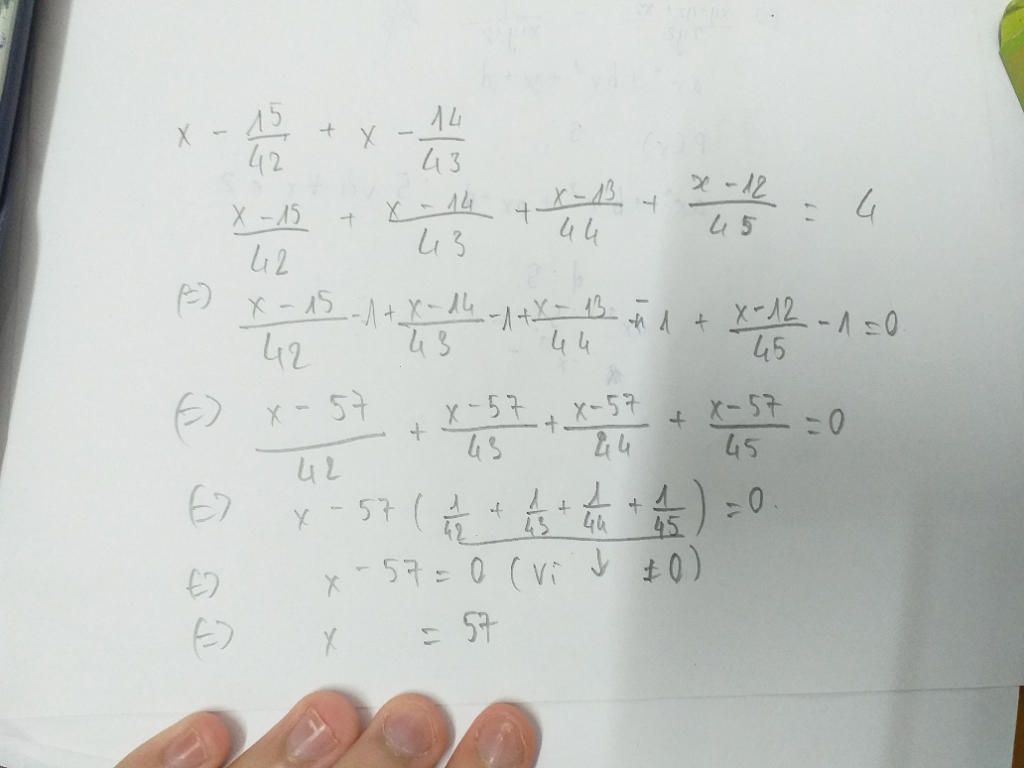 x - 15/42 + x - 14/43
(x - 15)/42 + (x - 14)/43 + (x - 13)/44 + (x - 12)/45 = 4
(=) (x - 15)/42 - 1 + (x - 14)/43 - 1 + (x - 13)/44 - 1 + (x - 12)/45 - 1 = 0
(=) (x - 57)/42 + (x - 57)/43 + (x - 57)/44 + (x - 57)/45 = 0
(=) x - 57 ( 1/42 + 1/43 + 1/44 + 1/45 ) = 0.
(=) x - 57 = 0 ( vì ↓ ≠ 0 )
(=) x = 57